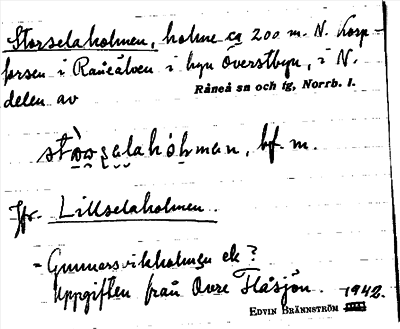 Storselaholmen, holme ca 200 m. N. Korp-
forsen i Råneälven i byn Överstbyn, i N.
delen av
Råneå sn och tg, Norrb. l.
bf. m.
Jfr. Lillselaholmen.
= Gunnarsvikholmen ek?
Uppgiften från Övre Flåsjön. 1942.
EDVIN BRÄNNSTRÖM